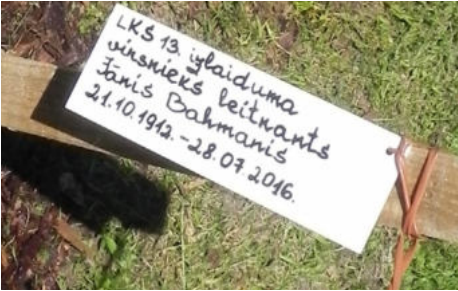 LKS 13. izlaiduma
virsnieks leitnants
Jānis Bahmanis
21.10.1912.-28.07.2016.